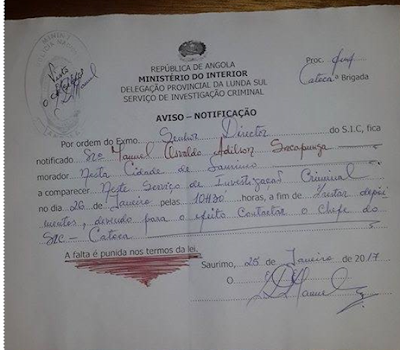 REPÚBLICA DE ANGOLA
MINISTÉRIO DO INTERIOR
DELEGAÇÃO PROVINCIAL DA LUNDA SUL
SERVIÇO DE INVESTIGAÇÃO CRIMINAL
Proc.
Catoca.ª Brigada
AVISO – NOTIFICAÇÃO
Por ordem do Exmo Senhor Director do S.I.C, fica
notificado Sro Manuel Osvaldo Adilson Sacapunga
morador Nesta Cidade de Saurimo
a comparecer Neste Serviço de Investigação Criminal
no dia 26 de Janeiro pelas 10H30 horas, a fim de Prestar depoi
mentos, devendo para o efeito Contactar o Chefe do
SIC – Catoca
A falta é punida nos termos da lei.
Saurimo, 25 de Janeiro de 2017
O
Manuel